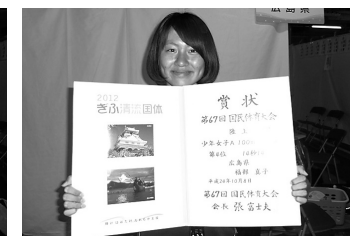 広島県
2012
ぎふ清流国体
賞状
第67回 国民体育大会
陸上
少年女子A 100
第6位
広島県
福部 真子
平成24年10月8日
第67回 国民体育大会
会長 張富士夫